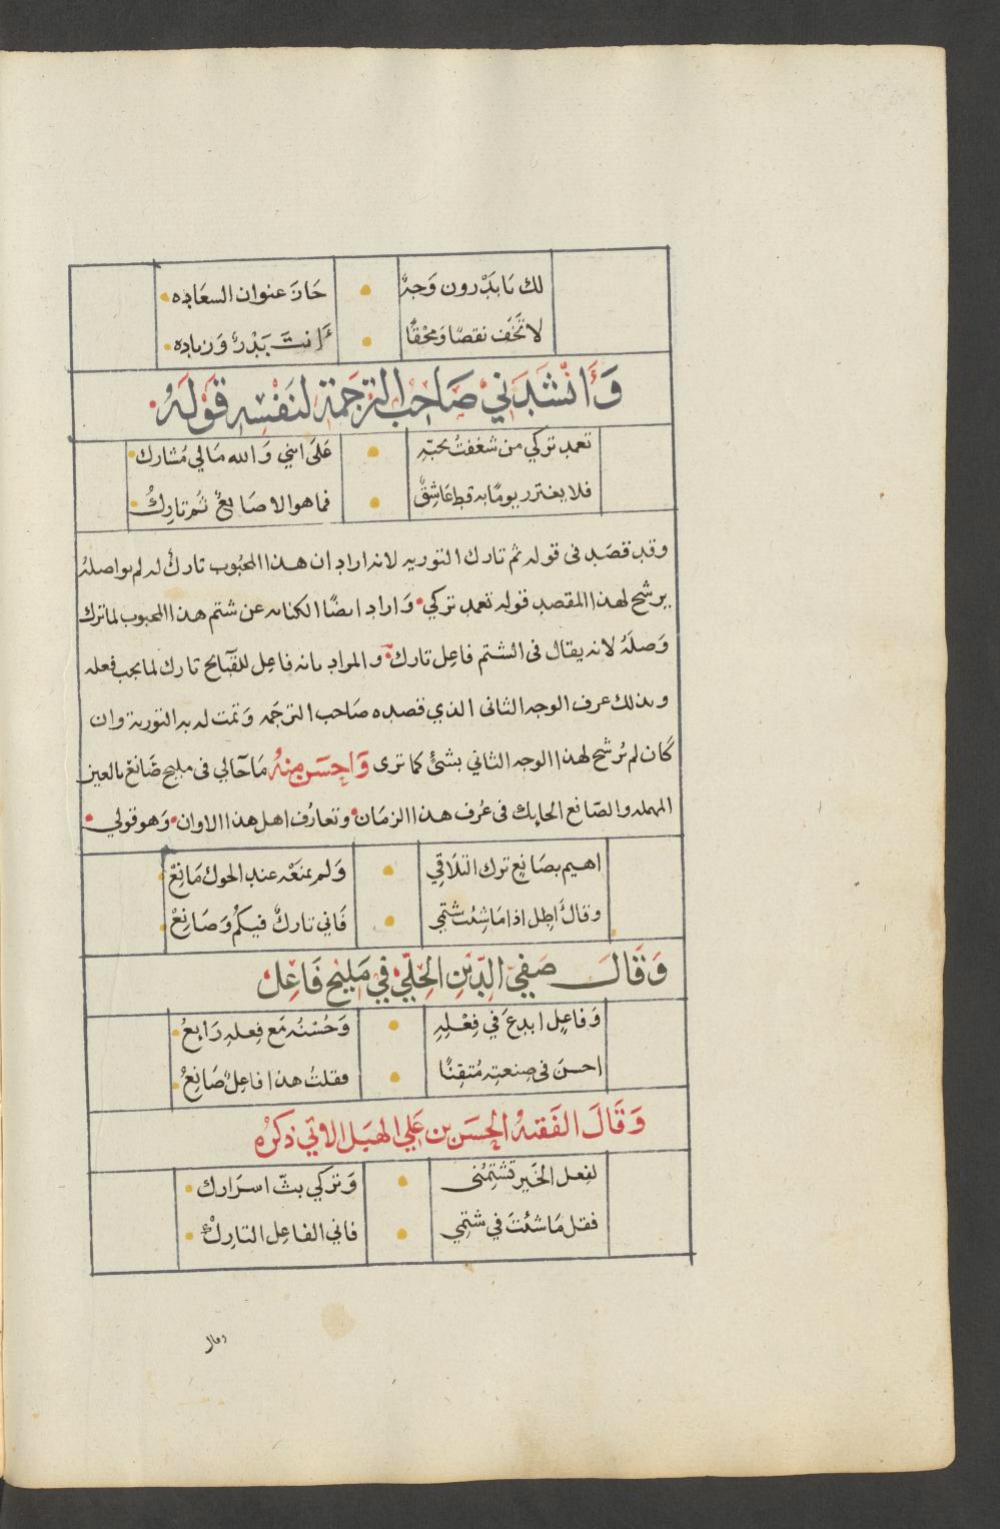 لك يا بدرون وجه • حاز عنوان السعاده •
لا تخف نقصًا ومحقًا • أنت بدرٌ وزياده •
وَأنشدني صَاحب الترجمة لنفسه قوله •
تعمد تركي من شغفتُ بحبّه • عَلى انني وَالله مَالي مُشارك •
فلا يغترر يومًا به قط عَاشقٌ • فما هو الا صَانعٌ ثم تاركُ •
وقد قصَد فى قوله ثم تارك التوريه لانه اراد ان هذا المحبوب تاركٌ له لم يواصله
يرشح لهذا المقصد قوله تعمد تركي • وَاراد ايضًا الكنايه عن شتم هذا المحبوب لما ترك
وَصلهُ لانه يقال فى الشتم فاعل تارك • والمراد بانه فاعل للقبايح تارك لما يجب فعله
وبذلك عرف الوجه الثانى الذي قصده صَاحب الترجمَه وَتمت له به التورية وان
كَان لم تُرشح لهذا الوجه الثاني بشئ كما ترى وَاحسَن منهُ مَا حَالي فى مليح صَانع بالعين
المهمله والصّانع الحايك فى عُرف هذا الزمَان • وتعارُف اهل هذا الاوان • وَهو قولي •
اهيم بصَانعٍ ترك التلَاقي • وَلم يمنعْه عند الحوك مَانعْ •
وقالَ أطِل اذا مَا شئت شتمي • فَاني تاركٌ فيكُم وَصَانعْ •
وَقَالَ صَفيّ الدّين الحلّيّ في مَليح فَاعل
وَفاعِلٍ ابدعَ في فِعْلهِ • وَحُسْنُه مَع فِعله رَايعُ •
احسنَ فى صنعته مُتقِنًا • فقلتُ هذا فاعلٌ صَانعُ •
وَقَالَ الفَقيهُ الحسَن بن عَلي الهبَل الاتي ذكرُه
لفعل الخَير تشتمُنى • وَتركي بثّ اسرَارك •
فقل مَا شئتَ في شتمِي • فاني الفاعِل التاركْ •
وقال